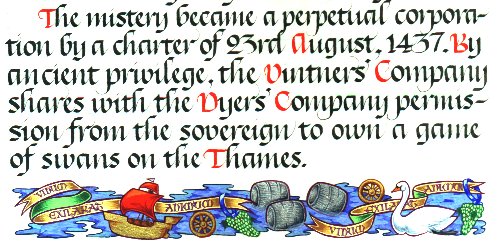 The mistery became a perpetual corpora-
tion by a charter of 23rd August, 1437. By
ancient privilege, the Vintners' Company
shares with the Dyers' Company permis-
sion from the sovereign to own a game
of swans on the Thames.
VINUM
EXILARAT
ANIMUM
VINUM
EXILARAT
ANIMUM